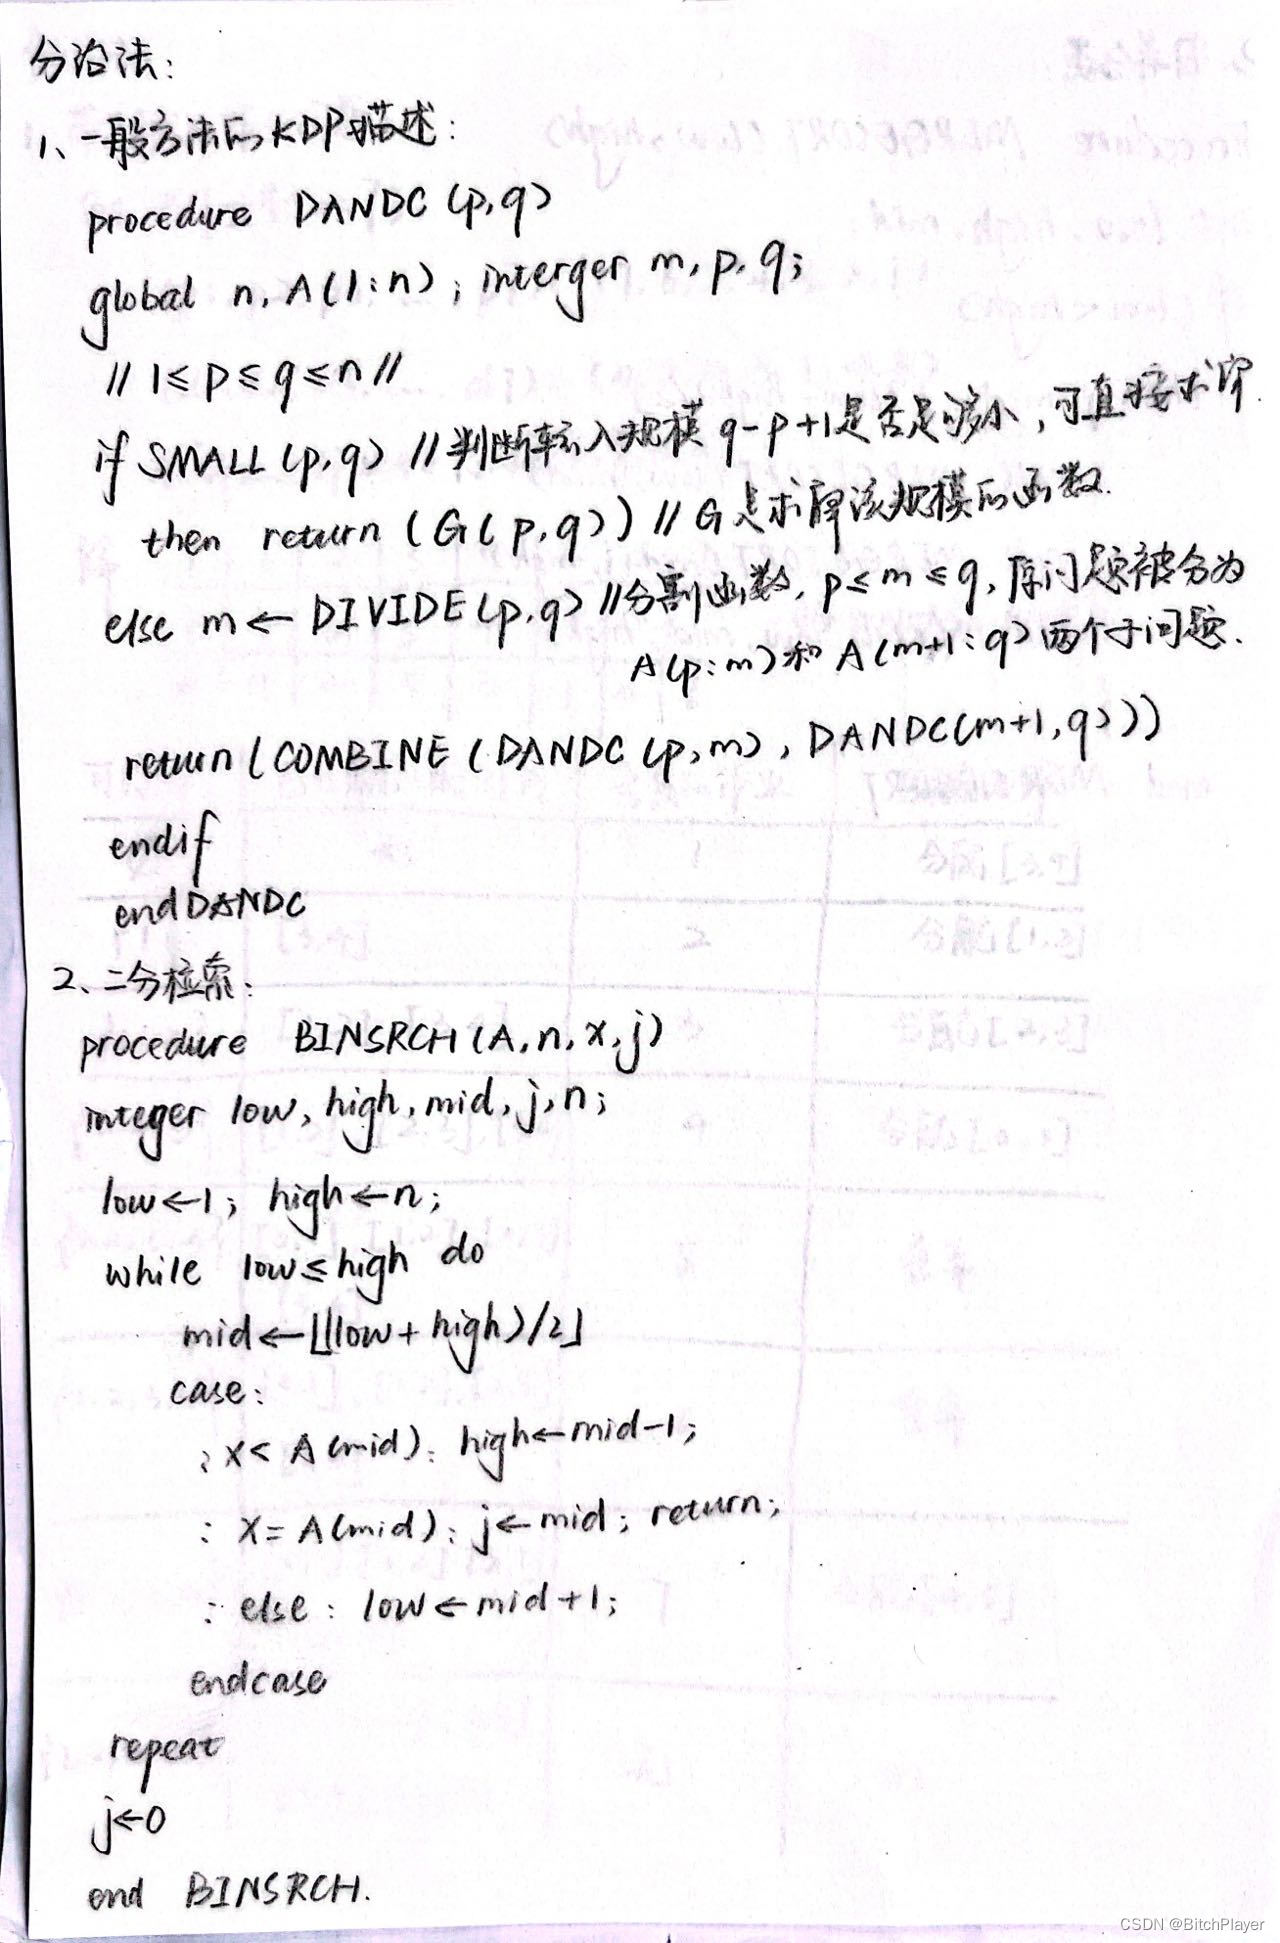 分治法：
1、一般方法的KDP描述：
procedure DANDC (p,q)
global n, A(1:n); interger m, p, q;
// 1≤p≤q≤n //
if SMALL (p,q) //判断输入规模 q-p+1是否足够小，可直接求解.
then return (G(p,q)) // G是求解该规模的函数.
else m← DIVIDE(p,q) //分割函数, p≤m≤q, 原问题被分为
A(p:m)和 A(m+1:q) 两个子问题.
return(COMBINE (DANDC (p,m), DANDC(m+1,q)))
endif
endDANDC
2、二分检索：
procedure BINSRCH (A,n,x,j)
integer low, high, mid, j, n;
low←1; high←n;
while low≤high do
mid←⌊(low+high)/2⌋
case:
: x< A(mid): high←mid-1;
: x= A(mid): j←mid; return;
: else: low←mid+1;
endcase
repeat
j←0
end BINSRCH.
CSDN @BitchPlayer